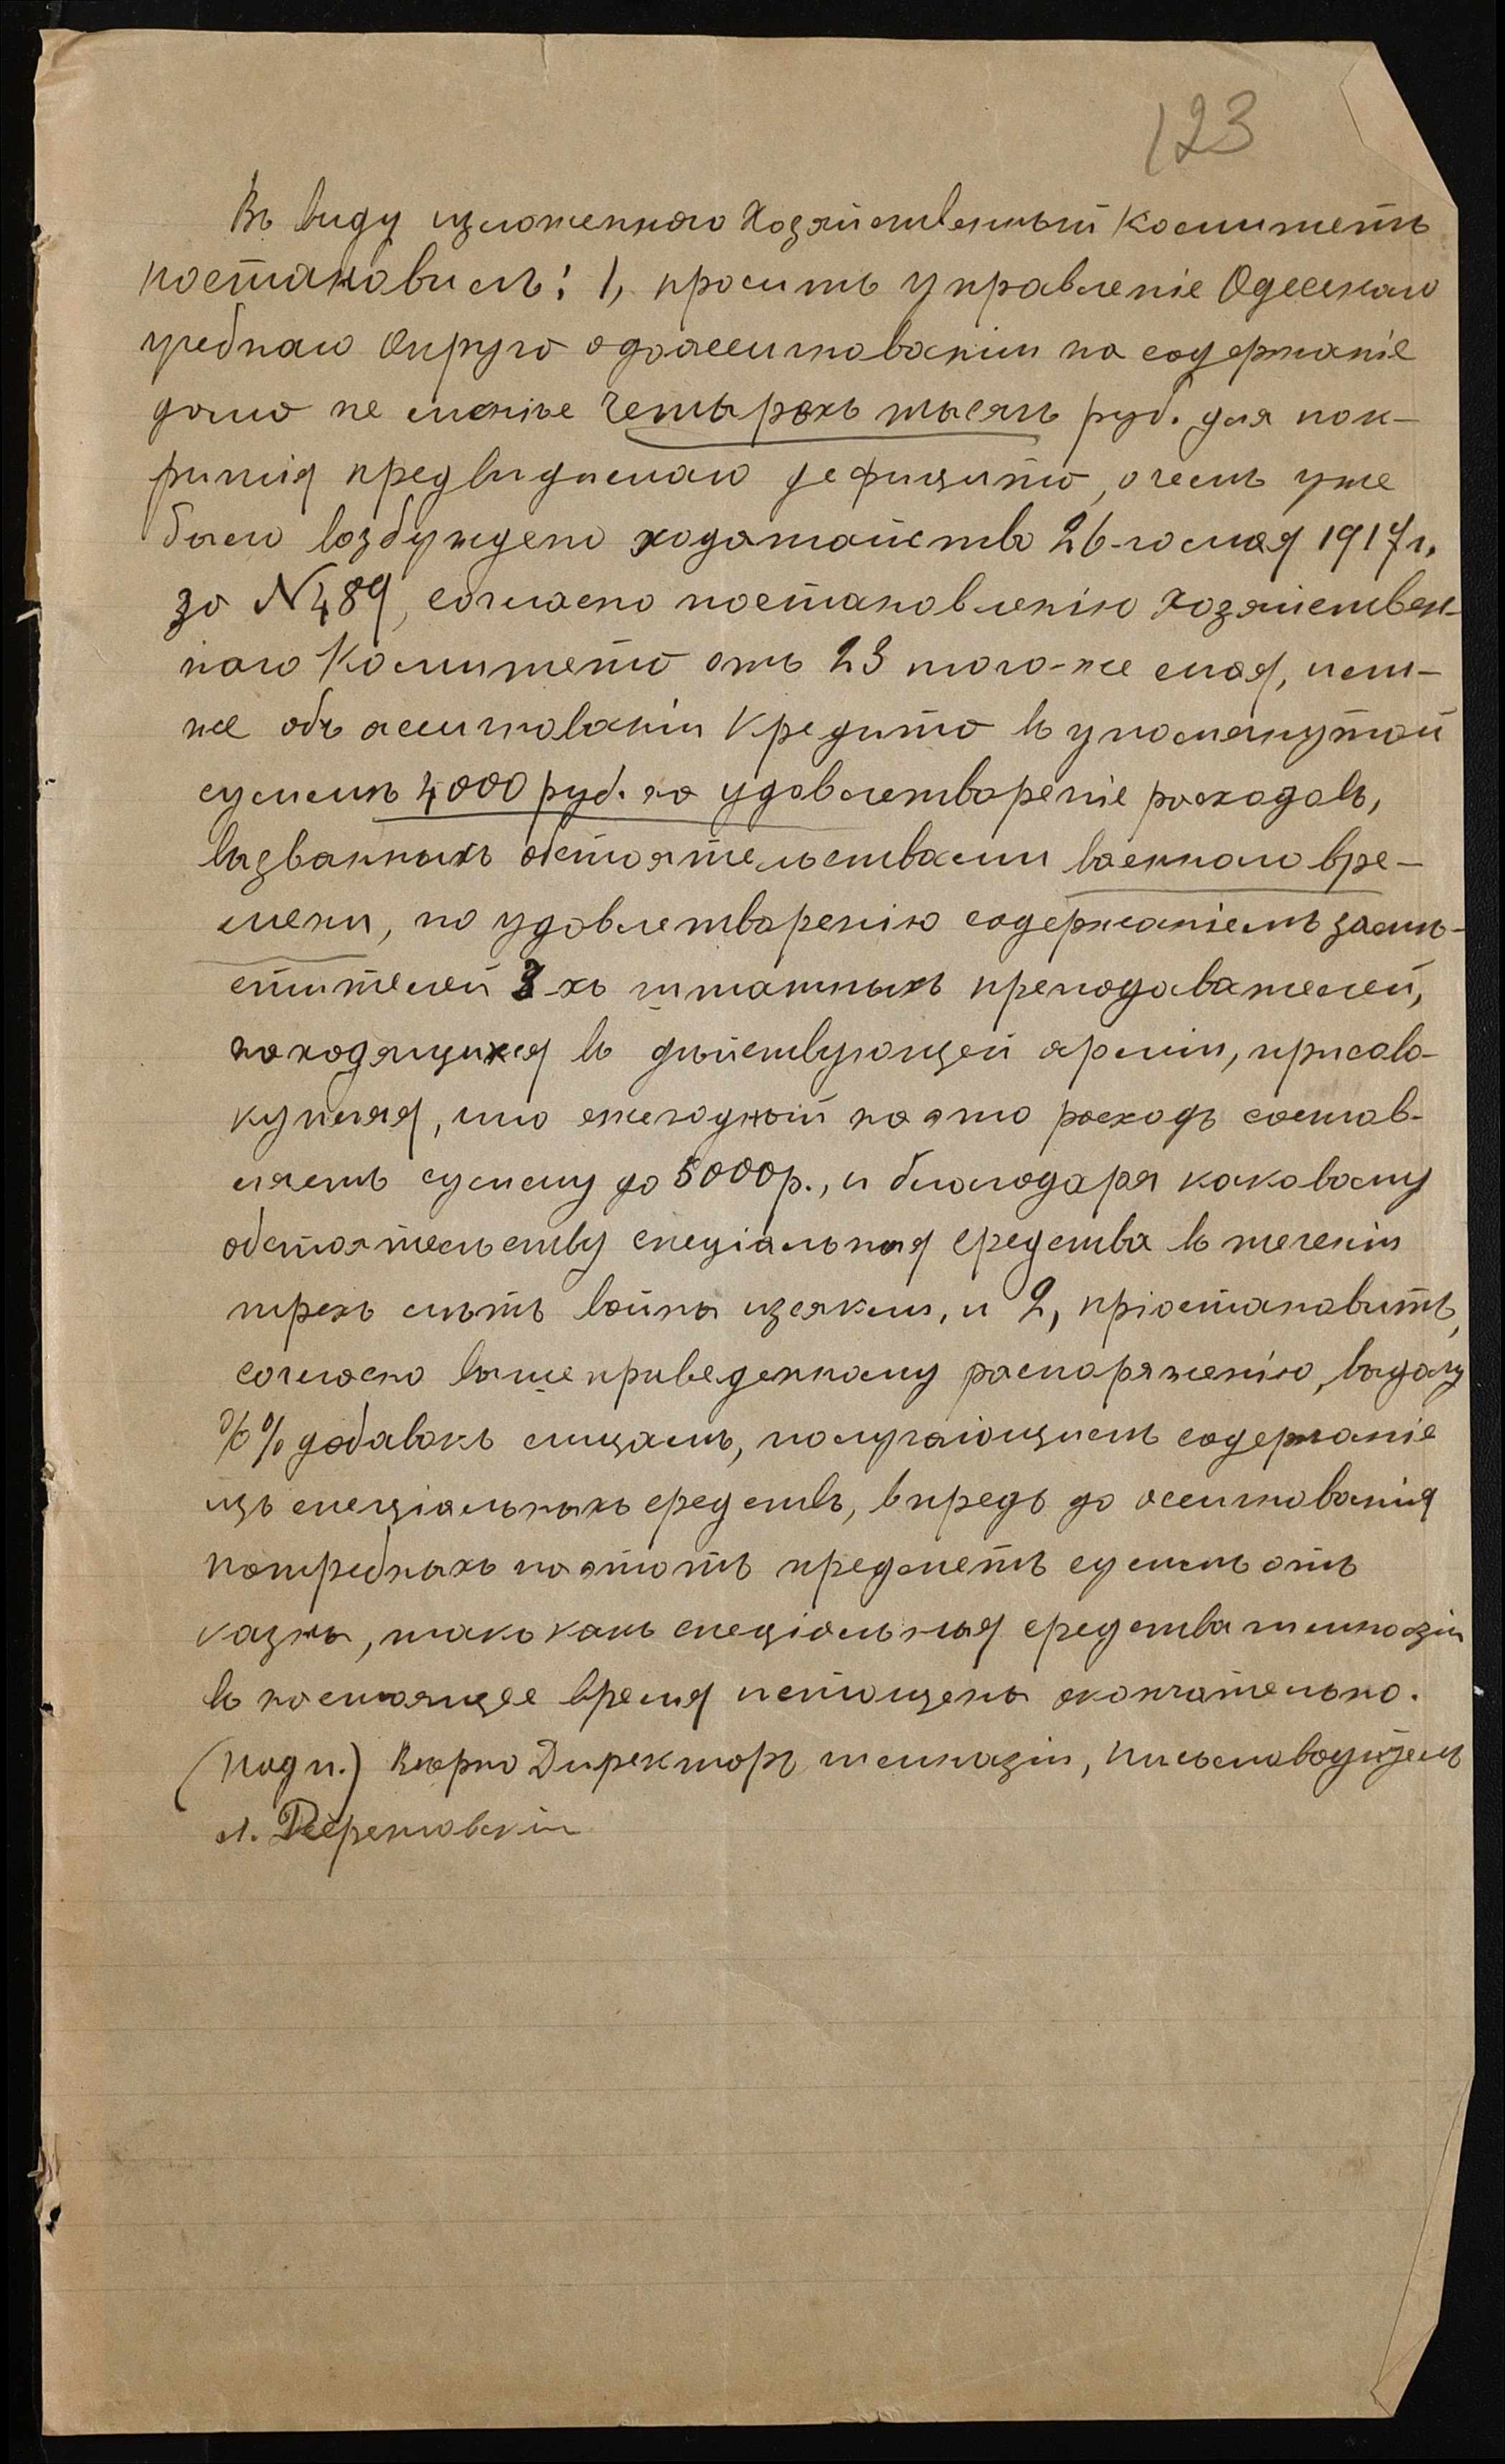 123
Въ виду изложеннаго Хозяйственный Комитетъ
постановилъ: 1, просить Управленіе Одесскаго
учебнаго Округа одоассигнованіи на содержаніе
дома не менѣе четырехъ тысячъ руб. для пок-
рытія предвидимаго дефицита, о чемъ уже
было возбуждено ходатайство 26-го мая 1917 г.
за № 489, согласно постановленію Хозяйствен-
наго Комитета отъ 23 того-же мая, и так-
же объ ассигнованіи кредита въ упомянутой
суммѣ 4000 руб. на удовлетвореніе расходовъ,
вызванныхъ обстоятельствами военнаго вре-
мени, по удовлетворенію содержаніемъ замѣ-
стителей 3-хъ штатныхъ преподавателей,
находящихся въ дѣйствующей арміи, присово-
купляя, что ежегодный на это расходъ состав-
ляетъ сумму до 5000 р., и благодаря каковому
обстоятельству спеціальныя средства въ теченіи
трехъ лѣтъ войны изсякли, и 2, пріостановить,
согласно вышеприведенному распоряженію, выдачу
%% добавокъ лицамъ, получающимъ содержаніе
изъ спеціальныхъ средствъ, впредь до ассигнованія
потребныхъ на этотъ предметъ суммъ отъ
казны, такъ какъ спеціальныя средства гимназіи
въ настоящее время истощены окончательно.
(Подп.) Вѣрно Директоръ гимназіи, Письмоводитель